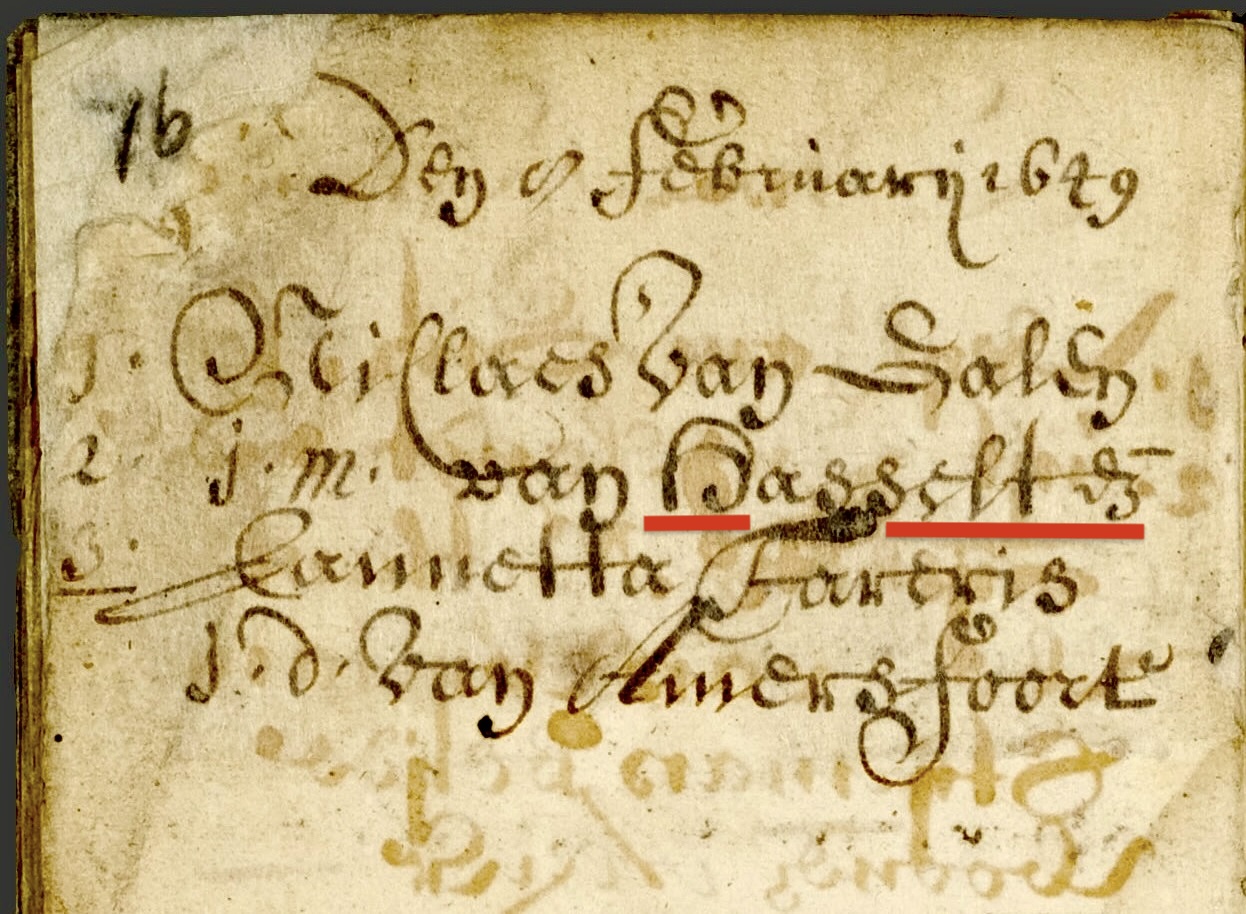 76
Den 8 februarij 1649
1. Nicllaes van Salen
2 j. m. van Hasselt en
3. Lannetta Tareris
J. d. van Amersfoort